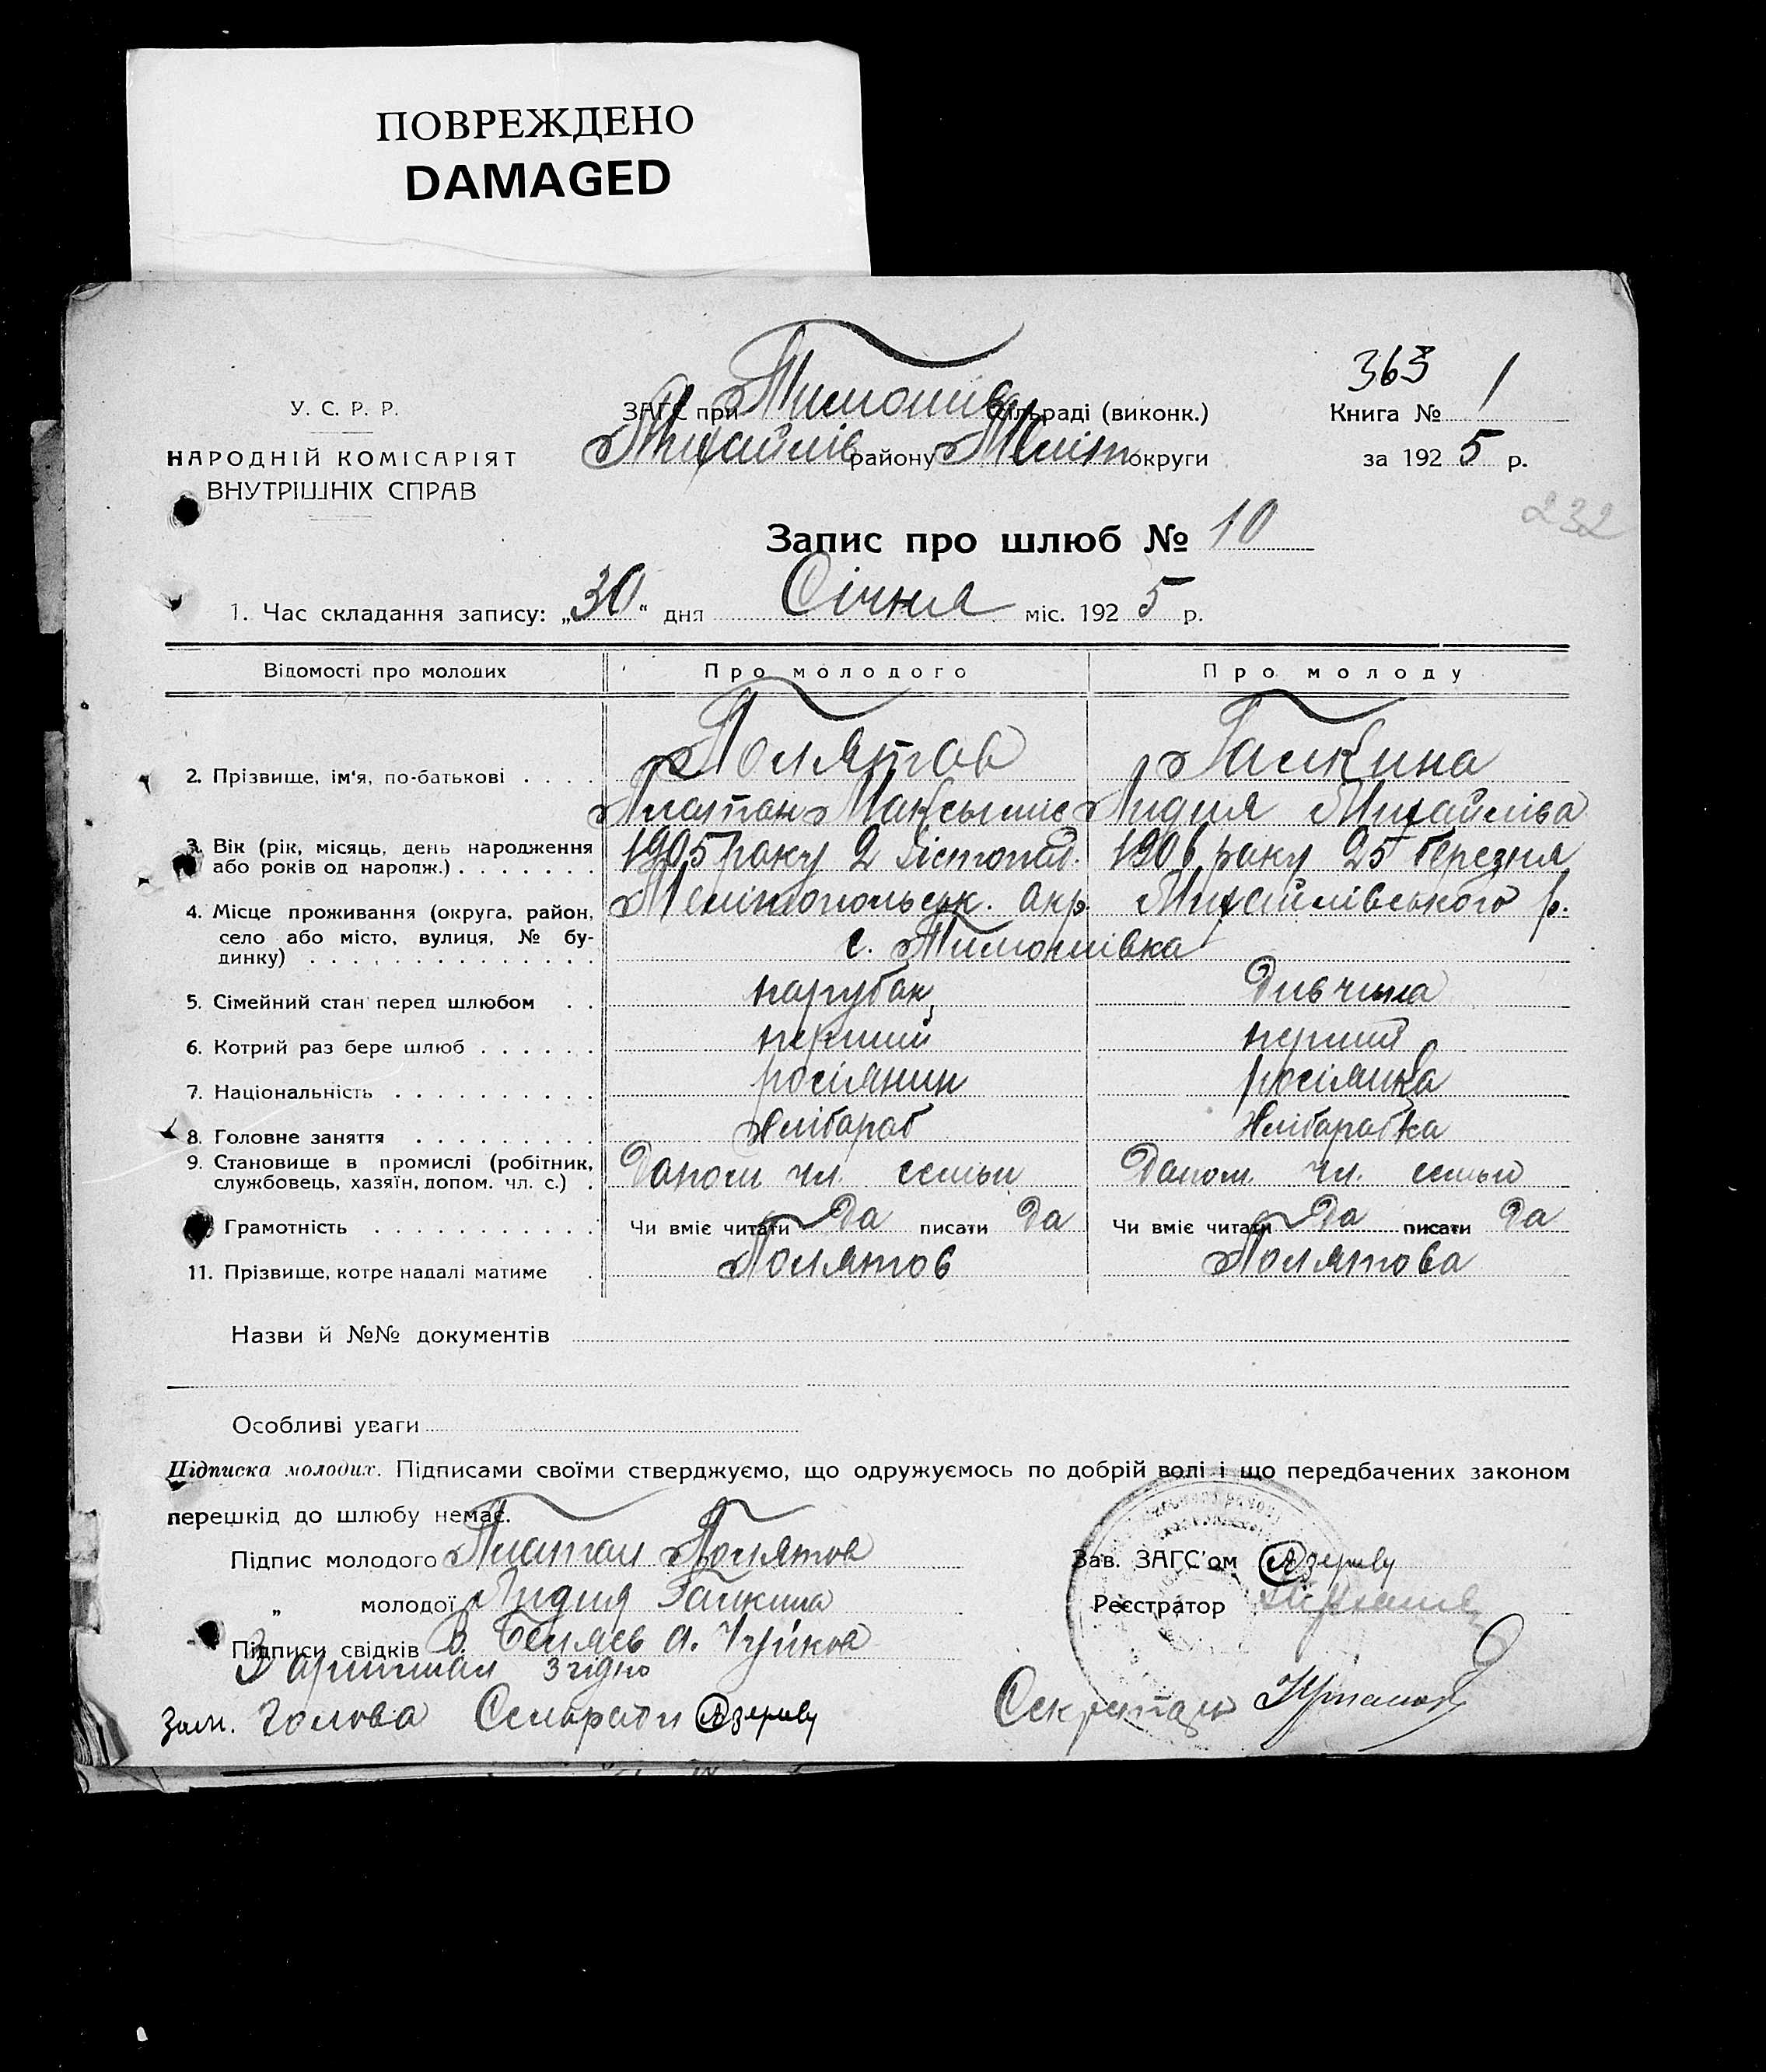 ПОВРЕЖДЕНО
DAMAGED
363
У. С. Р. Р.
ЗАГС при Тимошів сільраді (виконк.)
Книга № 1
НАРОДНІЙ КОМІСАРІЯТ
Михайлів району Меліт округи
за 1925 р.
ВНУТРІШНІХ СПРАВ
232
Запис про шлюб № 10
1. Час складання запису: „30" дня Січня міс. 1925 р.
Відомості про молодих Про молодого Про молоду
2. Прізвище, ім'я, по-батькові . . . . Полятов Галкина
Платон Максымів Лидия Михайліва
3. Вік (рік, місяць, день народження
або років од народж.) . . . . . . . 1905 року 2 Лістопад. 1906 року 25 березня
4. Місце проживання (округа, район, Мелітопольськ. окр. Михайлівського р.
село або місто, вулиця, № бу-
динку) . . . . . . . . . . . . . . с. Тимошівка
5. Сімейний стан перед шлюбом . . парубок Дивчина
6. Котрий раз бере шлюб . . . . . . перший перший
7. Національність . . . . . . . . . . росіянин росіянка
8. Головне заняття . . . . . . . . . Хлібароб Хлібаробка
9. Становище в промислі (робітник,
службовець, хазяїн, допом. чл. с.) . Допом чл. семьи Допом. чл. семьи
Грамотність . . . . . . . . . . . Чи вміє читати Да писати Да Чи вміє читати Да писати Да
11. Прізвище, котре надалі матиме . Полятов Полятова
Назви й №№ документів
Особливі уваги
Підписка молодих. Підписами своїми стверджуємо, що одружуємось по добрій волі і що передбачених законом
перешкід до шлюбу немає.
Підпис молодого Платон Полятов
Зав. ЗАГС'ом
„ молодої Лидия Галкина
Реєстратор
Підписи свідків В. Беляев А. Чуйков
З оригіналом згідно
Зам. Голова Сельради
Секретарь